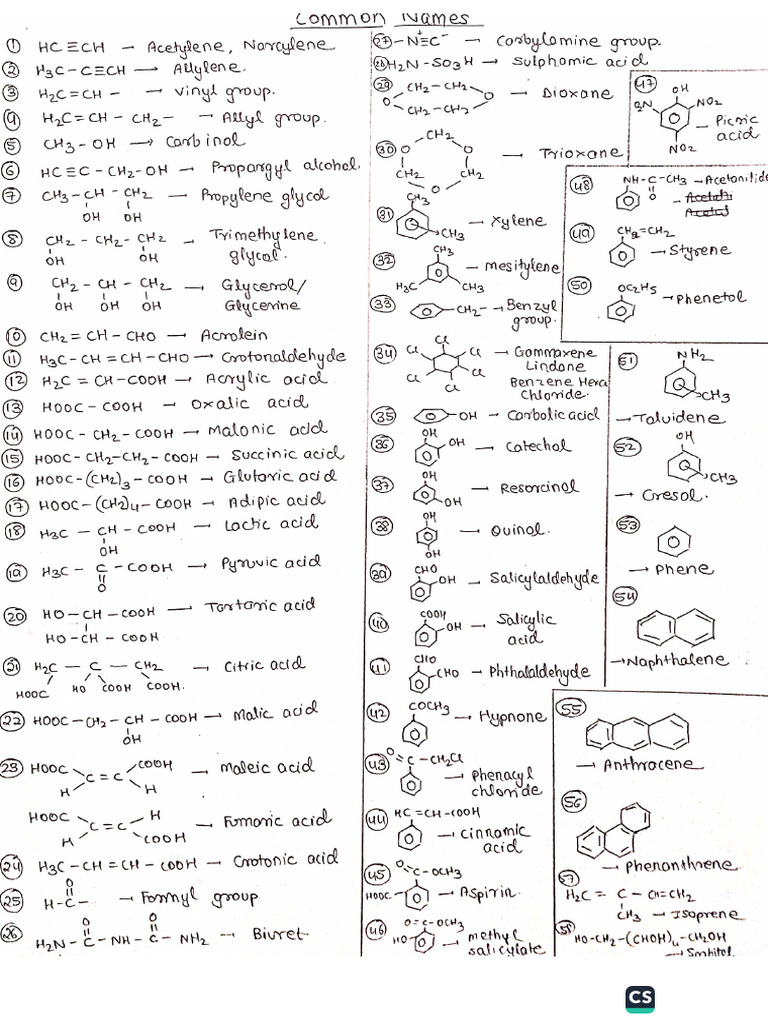 Common Names
① HC≡CH — Acetylene, Narcylene
② H3C–C≡CH → Allylene.
③ H2C=CH – → Vinyl group.
④ H2C=CH – CH2– → Allyl group.
⑤ CH3 – OH → Carbinol
⑥ HC≡C – CH2–OH → Propargyl alcohol.
⑦ CH3–CH – CH2 → Propylene glycol
OH OH
⑧ CH2 – CH2– CH2 → Trimethylene
OH OH glycol.
⑨ CH2 – CH – CH2 → Glycerol/
OH OH OH Glycerine
⑩ CH2=CH–CHO → Acrolein
⑪ H3C–CH=CH–CHO → Crotonaldehyde
⑫ H2C=CH–COOH → Acrylic acid
⑬ HOOC–COOH → Oxalic acid
⑭ HOOC–CH2–COOH → Malonic acid
⑮ HOOC–CH2–CH2–COOH → Succinic acid
⑯ HOOC–(CH2)3–COOH → Glutaric acid
⑰ HOOC–(CH2)4–COOH → Adipic acid
⑱ H3C – CH–COOH → Lactic acid
OH
⑲ H3C – C–COOH → Pyruvic acid
O
⑳ HO–CH–COOH → Tartaric acid
HO–CH–COOH
㉑ H2C — C — CH2 → Citric acid
HOOC HO COOH COOH.
㉒ HOOC–CH2–CH–COOH → Malic acid
OH
㉓ HOOC COOH
C=C → Maleic acid
H H
HOOC H
C=C → Fumaric acid
H COOH
㉔ H3C–CH=CH–COOH → Crotonic acid
O
㉕ H–C– → Formyl group
O O
㉖ H2N–C–NH–C–NH2 → Biuret
㉗ –N≡C– → Carbylamine group.
㉘ H2N–SO3H → Sulphamic acid
㉙ CH2–CH2
O O → Dioxane
CH2–CH2
㉚ CH2
O O → Trioxane
CH2 CH2
O
㉛ CH3
→ Xylene
CH3
㉜ CH3
→ mesitylene
H3C CH3
㉝ CH2– → Benzyl
group.
㉞ Cl Cl
Cl Cl → Gammaxene
Lindane
Cl Cl Benzene Hexa
Chloride.
㉟ OH → Carbolic acid
㊱ OH
OH → Catechol
㊲ OH
→ Resorcinol
OH
㊳ OH
→ Quinol.
OH
㊴ CHO
OH → Salicylaldehyde
㊵ COOH
OH → Salicylic
acid
㊶ CHO
CHO → Phthalaldehyde
㊷ COCH3
→ Hypnone
㊸ O=C–CH2Cl
→ Phenacyl
chloride
㊹ HC=CH–COOH
→ cinnamic
acid
㊺ O=C–OCH3
HOOC → Aspirin.
㊻ O=C–OCH3
HO → methyl
salicylate
㊼ OH
O2N NO2
→ Picric
acid
NO2
㊽ NH–C–CH3 → Acetanilide
O
㊾ CH2=CH2
→ Styrene
㊿ OC2H5
→ Phenetol
51 NH2
CH3
→ Toluidene
52 OH
CH3
→ Cresol.
53
→ Phene
54
→ Naphthalene
55
→ Anthracene
56
→ Phenanthrene
57
H2C = C – CH=CH2
CH3 → Isoprene
58 HO–CH2–(CHOH)4–CH2OH
→ Sorbitol
CS